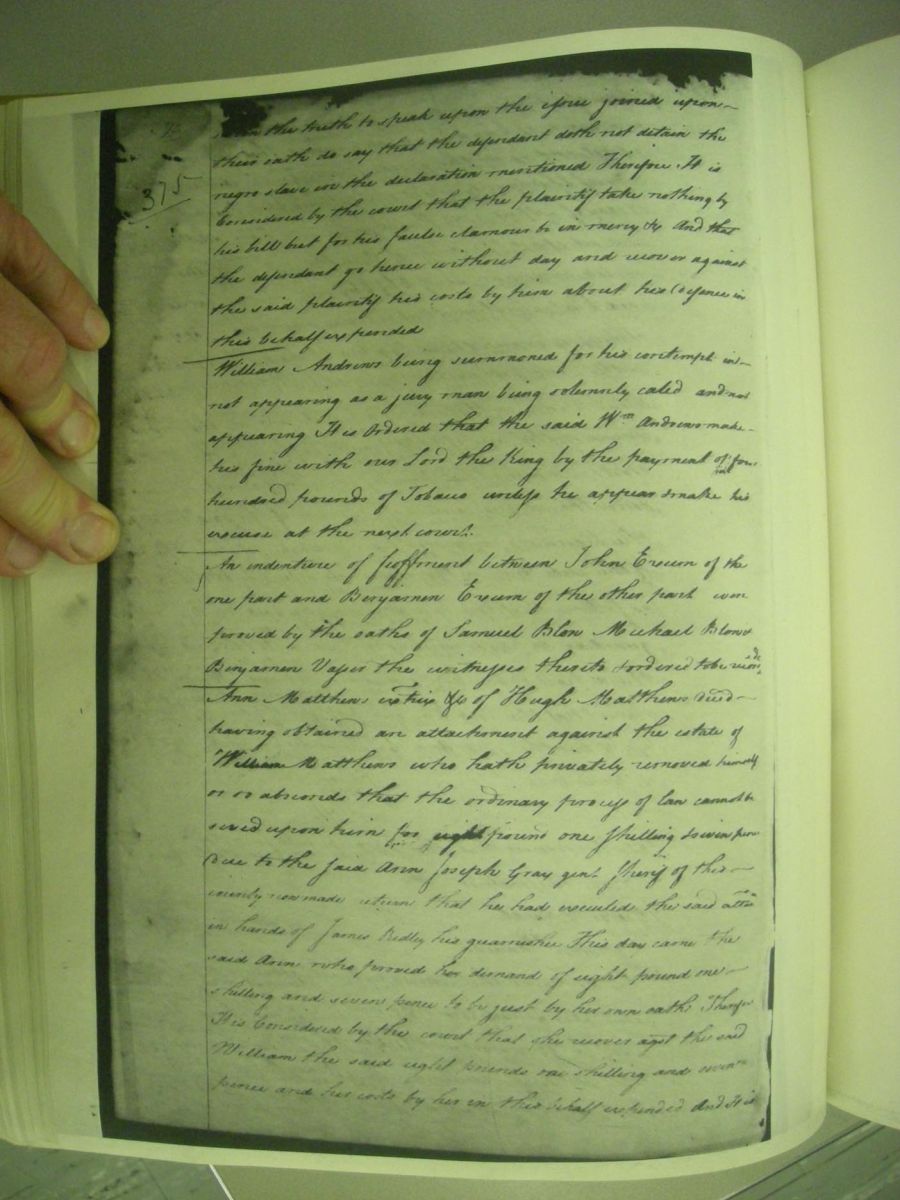 375
the truth to speak upon the issue joined upon
their oath do say that the defendant doth not detain the
negro slave in the declaration mentioned Therefore It is
Considered by the court that the plaintif take nothing by
his bill but for his faulse clamour be in mercy &c And that
the defendant go hence without day and recover against
the said plaintif his costs by him about his Defence in
this behalf expended
William Andrews being summoned for his contempt in
not appearing as a jury man being solemnly caled and not
appearing It is Ordered that the said Wm Andrews make
his fine with our Lord the King by the payment of four
hundred pounds of Tobacco unless he appear & make his
excuse at the next court.
An indenture of feoffment between John Exum of the
one part and Benjamen Exum of the other part were
proved by the oaths of Samuel Blow Michael Blow &
Benjamen Vasser the witnesses thereto & ordered to be recorded
Ann Matthews extrix &c of Hugh Matthews Decd
having obtained an attachment against the estate of
William Matthews who hath privately removed himself
or so absconds that the ordinary process of law cannot be
served upon him for eight pound one shilling & seven pence
Due to the said Ann Joseph Gray gent Sherif of this
county now made return that he had executed the said attmt
in hands of James Ridley his guarnishee This day came the
said Ann who proved her demand of eight pound one
shilling and seven pence to be just by her own oath Therefore
It is Considered by the court that she recover agst the said
William the said eight pounds one shilling and seven
pence and her costs by her in this behalf expended And It is